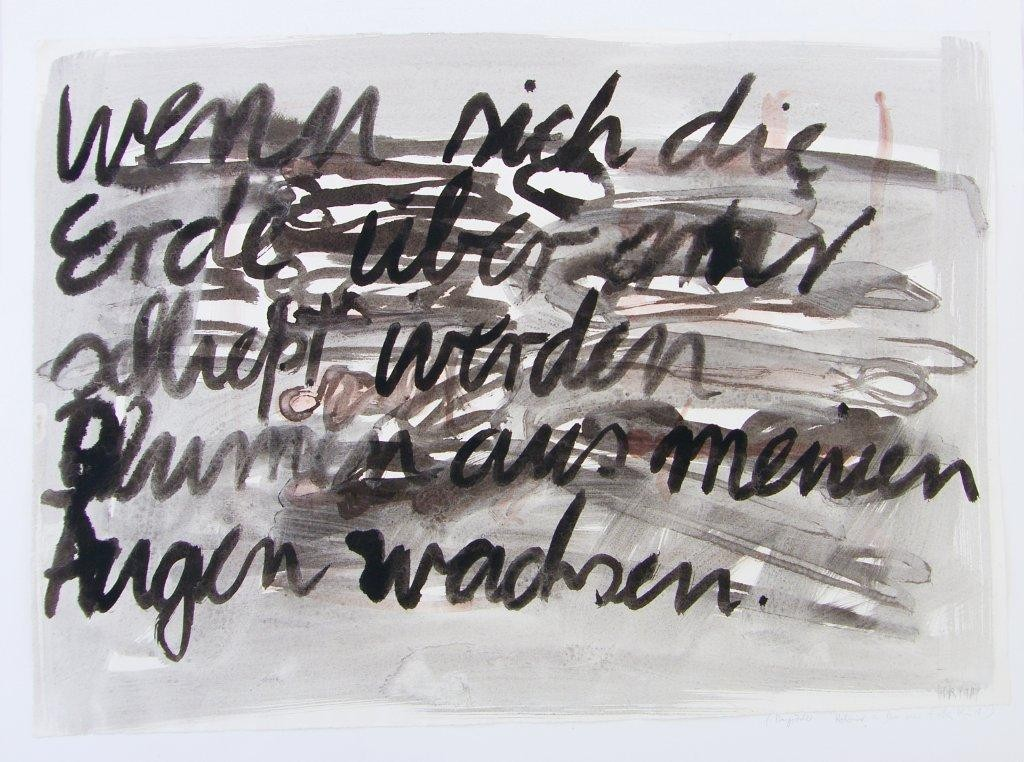 Wenn sich die
Erde über mir
schließt werden
Blumen aus meinen
Augen wachsen.